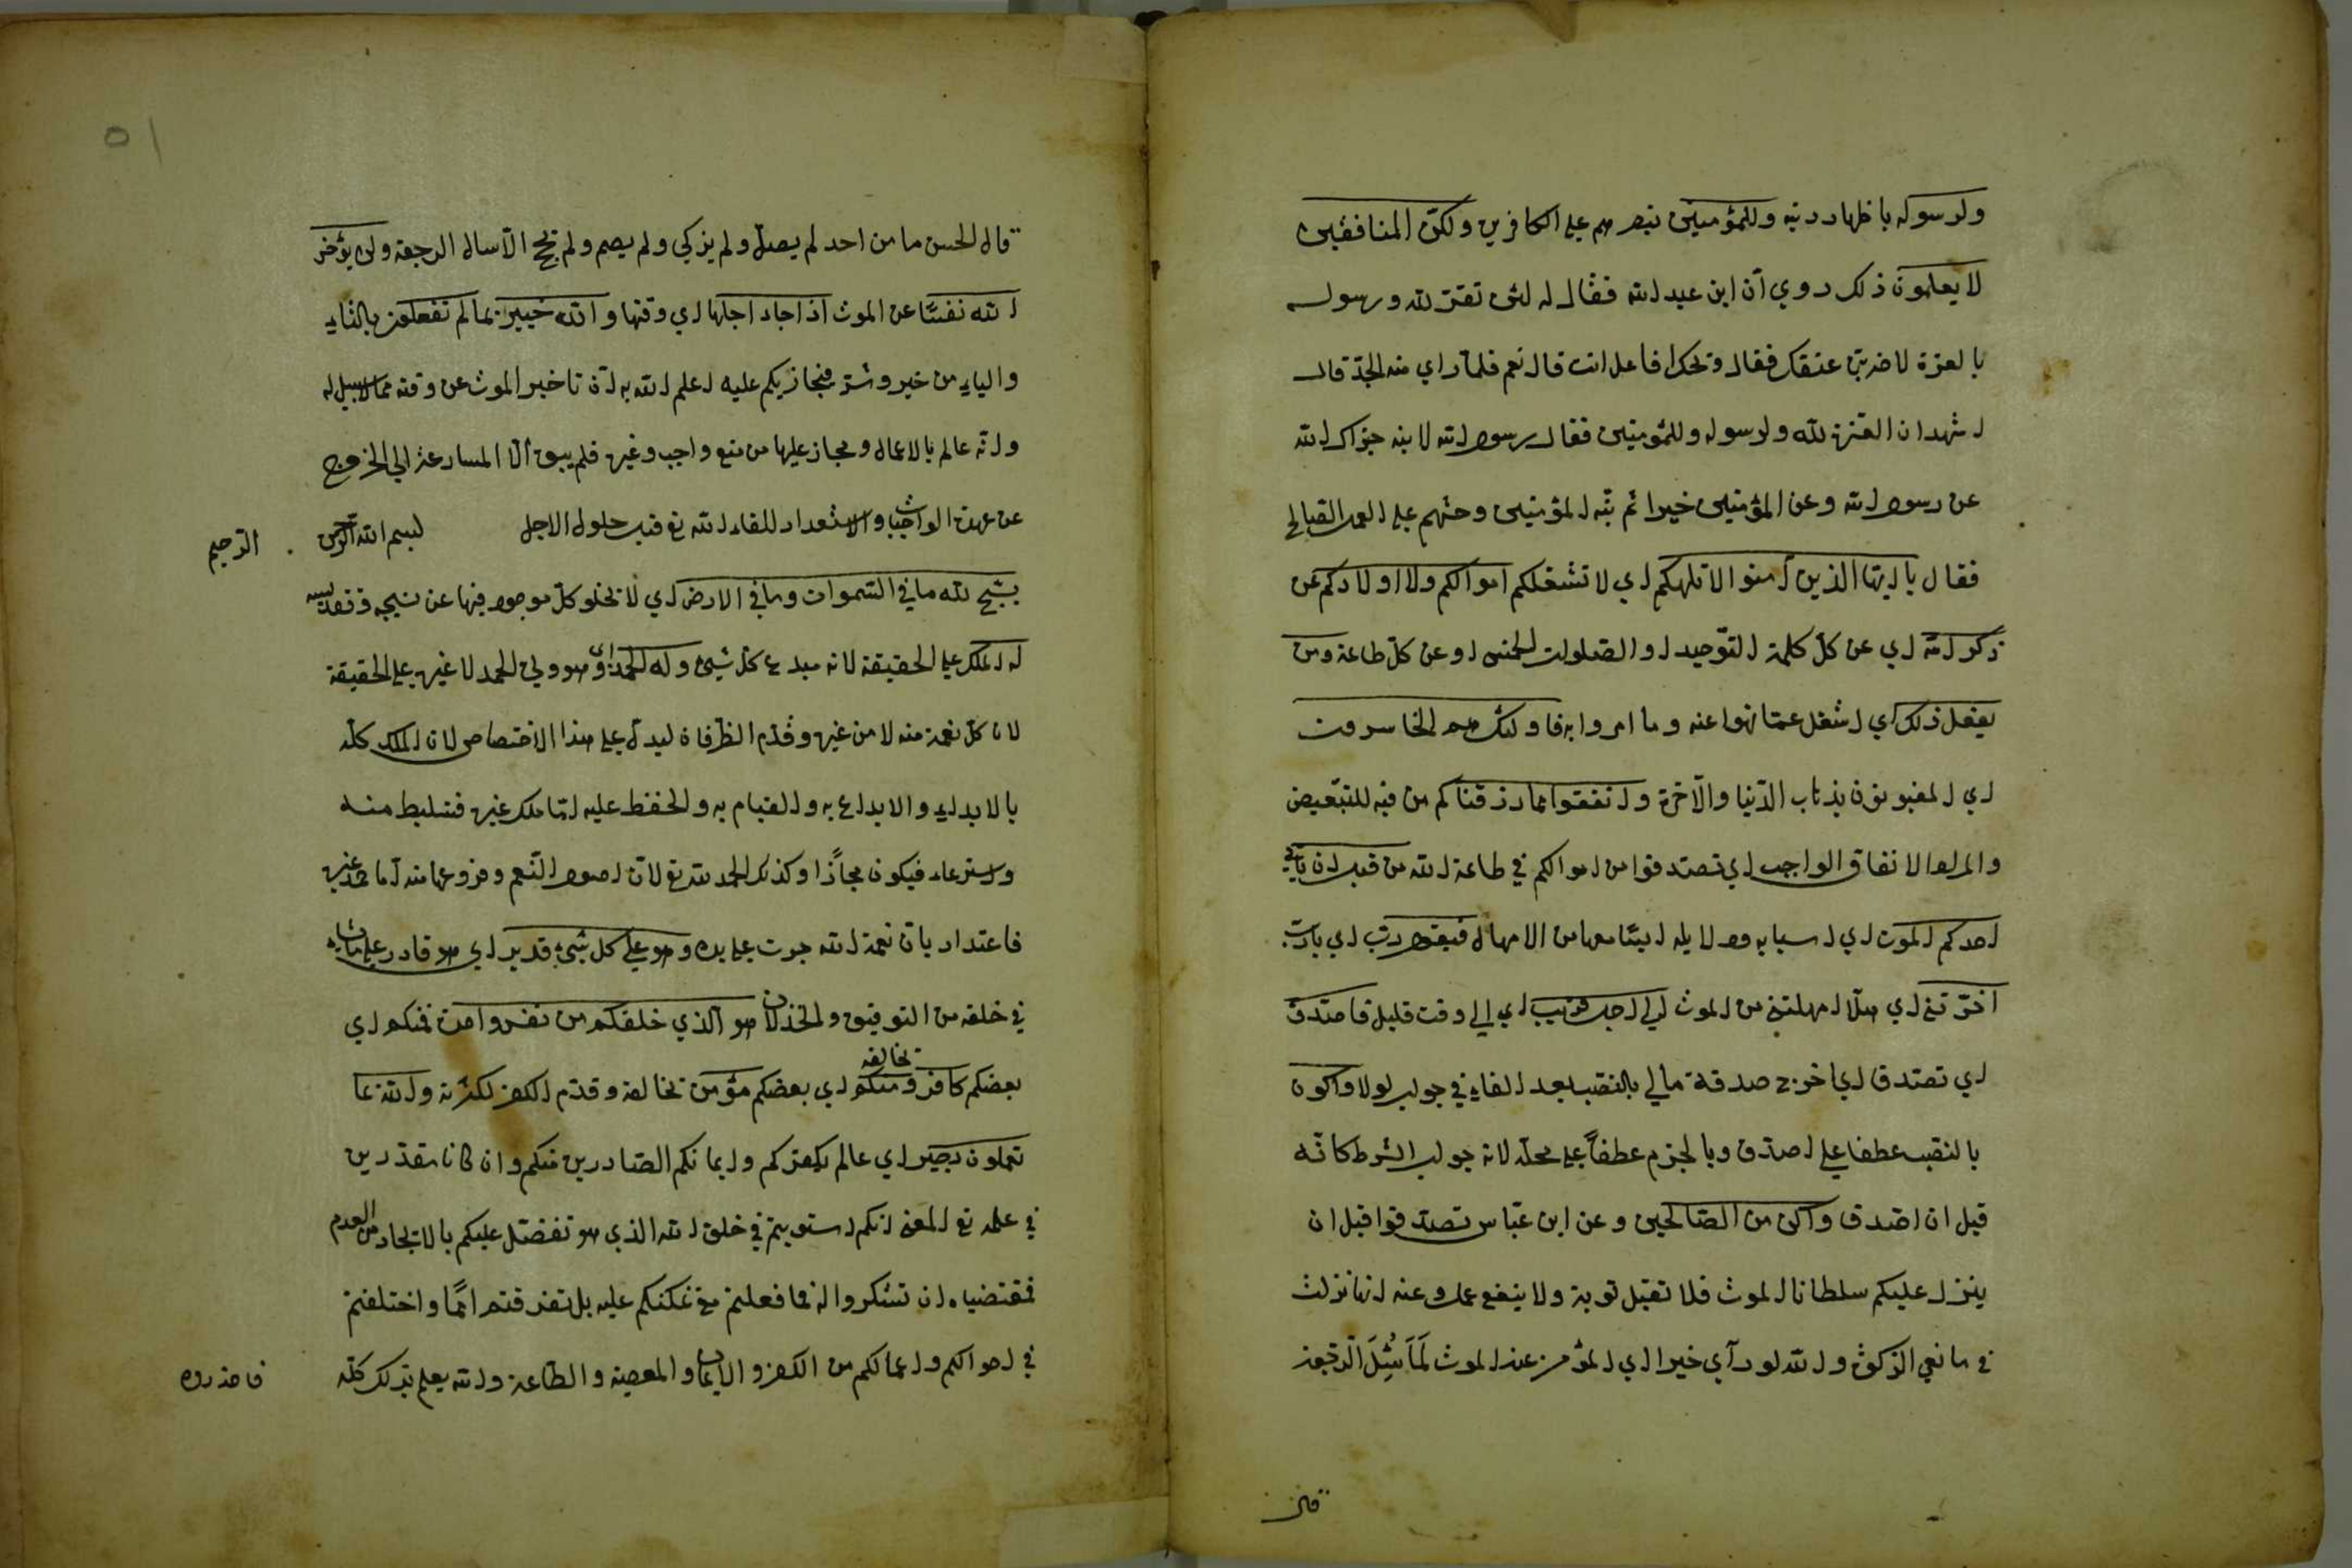 ولرسوله باظهار دينه وللمؤمنين بنصرهم على الكافرين ولكن المنافقين
لا يعلمون ذلك روي أن ابن عبد الله فقال له لئن تقر لله ورسوله
بالعزة لاضربن عنقك فقال ويحك افاعل انت قال نعم فلما راي منه الجد قال
اشهد ان العزة لله ولرسوله وللمؤمنين فقال رسول الله لابنه جزاك الله
عن رسول الله وعن المؤمنين خيرا ثم نبه المؤمنين وحثهم على العمل الصالح
فقال يا ايها الذين امنوا لا تلهكم اي لا تشغلكم اموالكم ولا اولادكم عن
ذكر الله اي عن كل كلمة التوحيد او الصلوات الخمس او عن كل طاعة ومن
يفعل ذلك اي اشغل عما نهوا عنه وما امروا به فاولئك هم الخاسرون
اي المغبونون بذهاب الدنيا والآخرة وانفقوا مما رزقناكم من فيه للتبعيض
والمراد الانفاق الواجب اي تصدقوا من اموالكم في طاعة الله من قبل ان يأتي
احدكم الموت اي اسبابه ودلايله معها من الامهال فيقول رب اي يا رب
اخرتني اي هلا امهلتني من الموت الي اجل قريب اي الي وقت قليل فاصدق
اي تصدق اي اخرج صدقة مالي بالنصب بعد الفاء في جواب لولا واكون
بالنصب عطفا علي اصدق وبالجزم عطفاً علي محله لانه جواب الشرط كانه
قيل ان اصدق واكن من الصالحين وعن ابن عباس تصدقوا قبل ان
ينزل عليكم سلطان الموت فلا تقبل توبة ولا ينفع عمل وعنه انها نزلت
في مانعي الزكوة والله لو رآي خيرا اي المؤمن عند الموت لما سُئل الرجعة
قال الحسن ما من احد لم يصل ولم يزكي ولم يصم ولم يحج الا سال الرجعة ولن يؤخر
الله نفسًا عن الموت اذا جاء اجلها اي وقتها والله خبير بما لم تفعلون بالتاء
والياء من خير وشر فيجازيكم عليه اعلم الله به لان تاخير الموت عن وقته مما لا سبيل له
وانه عالم بالاعمال ومجاز عليها من منع واجب وغيره فلم يبق الا المسارعة الي الخروج
عن عهدة الواجبات والاستعداد للقاء الله تع قبل حلول الاجل بسم الله الرحمن الرحيم
يسبح لله ما في السموات وما في الارض اي لا تخلو كل موجود فيها عن تسبيحه وتقديسه
له الملك علي الحقيقة لانه مبدع كل شيئ وله الحمد اي وهو ولي الحمد لا غيره علي الحقيقة
لان كل نعمة منه لا من غيره وقدم الظرفان ليدل علي هذا الاختصاص لان الملك كله
بالابداء والابداع به والقيام به والحفظ عليه اما ملك غيره فتسليط منه
واسترعاء فيكون مجازًا وكذلك الحمد لله تع لان اصول النعم وفروعها منه اما حمد غيره
فاعتداد بان نعمة الله جرت علي يده وهو علي كل شيئ قدير اي هو قادر علي ما يشاء
في خلقه من التوفيق والخذلان هو الذي خلقكم من نفس واحدة فمنكم اي
بعضكم كافر ومنكم اي بعضكم مؤمن تخالفه وقدم الكفر لكثرته والله بما
تخالفه
تعملون بصير اي عالم بكفركم وايمانكم الصادرين منكم وان كانا مقدرين
في علمه تع المعني انكم استويتم في خلق الله الذي هو تفضل عليكم بالايجاد من العدم
فمقتضياه ان تشكروا له فما فعلتم مع تمكنكم عليه بل تفرقتم امًا واختلفتم
في احوالكم واعمالكم من الكفر والايمان والمعصية والطاعة والله يعلم بذلك كله
فاحذروه